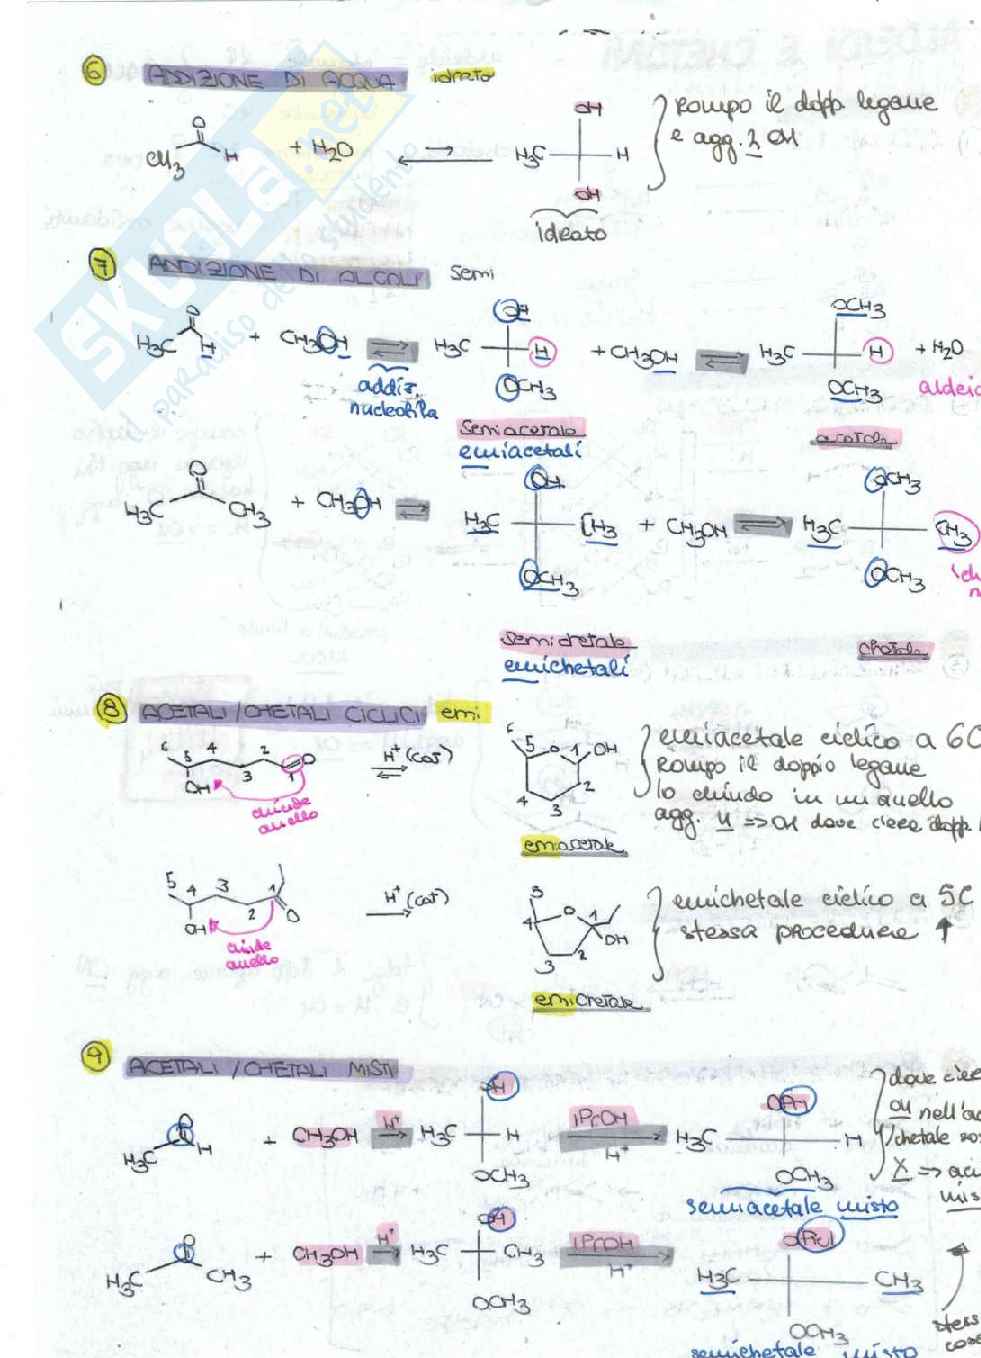 6 ADDIZIONE DI ACQUA idrato
CH3 O H + H2O H3C OH H OH
Rompo il dopp legame
e agg. 2 OH
idrato
7 ADDIZIONE DI ALCOLI Semi
H3C O H + CH3OH H3C OH H OCH3 + CH3OH H3C OCH3 H OCH3 + H2O
addiz.
nucleofila
Semiacetale
emiacetali
acetale
H3C O CH3 + CH3OH H3C OH CH3 OCH3 + CH3OH H3C OCH3 CH3 OCH3
semichetale
emichetali
chetale
8 ACETALI/CHETALI CICLICI emi
6 5 4 3 2 1 O OH H+ (cat) 6 5 O 1 OH 2 3 4
chiude
anello
emiacetale
emiacetale ciclico a 6C
Rompo il doppio legame
lo chiudo in un anello
agg. H => OH dove c'era dopp
5 4 3 2 1 O OH H+ (cat) 5 4 O 1 OH 2 3
chiude
anello
emichetale
emichetale ciclico a 5C
stessa procedura ↑
9 ACETALI/CHETALI MISTI
H3C O H + CH3OH H+ H3C OH H OCH3 iPrOH H+ H3C OiPr H OCH3
semiacetale misto
H3C O CH3 + CH3OH H+ H3C OH CH3 OCH3 iPrOH H+ H3C OiPr CH3 OCH3
semichetale misto
SKUOLA.net
paradiso dello studente